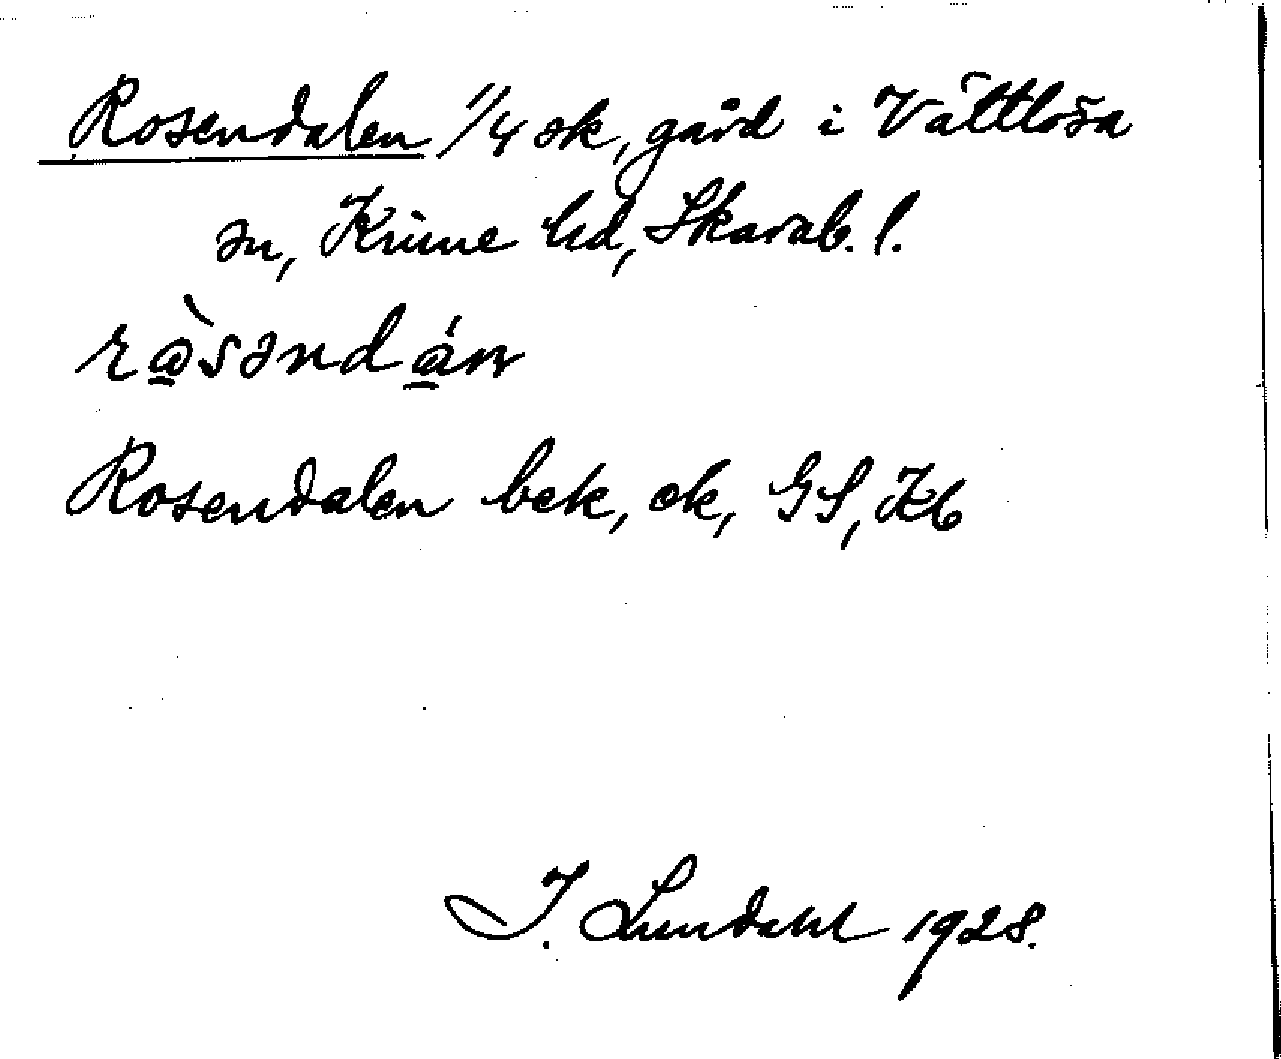 Rosendalen 1/4 sk, gård i Vättlösa
sn, Kinne hd, Skarab. l.
Rosendalen bek, ek, GS, Kb
I. Lundahl 1928.